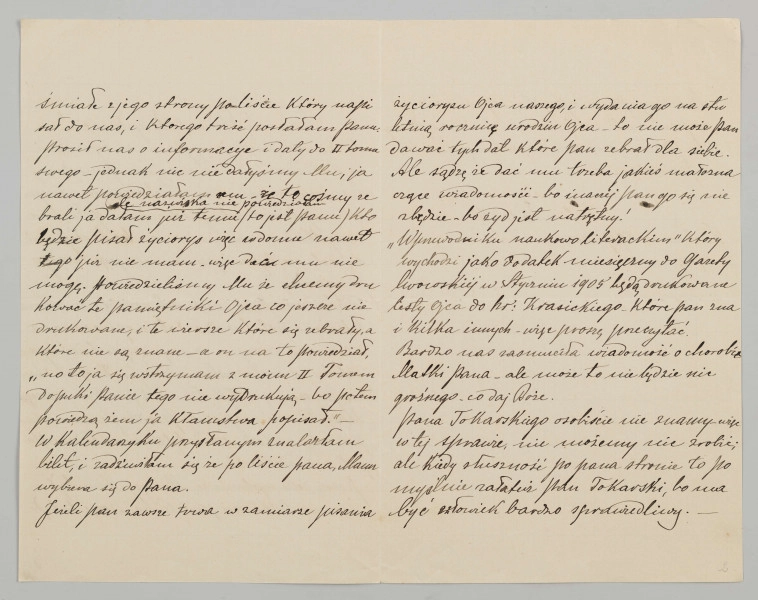 śmiałe z jego strony po liście który napi
sał do nas, i którego treść posłałam Panu.
Prosił nas o informacyje i daty do II tomu
swego – jednak nic nie dałyśmy Mu, i ja
nawet powiedziałam mu, że te cośmy ze
ale nazwiska nie powiedziałam
brali ja dałam już temu (to jest panu) kto
będzie pisał życiorys więc rodomu nawet
tego już nie mam – więc dać mu nie
mogę. Powiedzieliśmy Mu że chcemy dru
kować te pamiętniki Ojca co jeszcze nie
drukowane, i te wiersze które się zebrały, a
które nie są znane – a on na to powiedział,
„no to ja się wstrzymam z moim II Tomem
dopuki Panie tego nie wydrukują – bo potem
powiedzą żem ja kłamstwa popisał." –
W Kalendarzyku przysłanym znalazłam
bilet, i zadziwiłam się że po liście pana, Mann
wybiera się do Pana.
Jeżeli pan zawsze trwa w zamiarze pisania
życiorysu Ojca naszego, i wydania go na stu
letnią rocznicę urodzin Ojca – to nie może Pan
dawać tych dat które pan zebrał dla siebie.
Ale sądzę że dać mu trzeba jakieś małozna
czące wiadomości – bo inaczej pan go się nie
zbędzie – bo żyd jest natrętny!
„W przewodniku naukowo literackim" który
wychodzi jako dodatek miesięczny do Gazety
lwowskiej w Styczniu 1905 będą drukowane
listy Ojca do hr: Krasickiego – które pan zna
i kilka innych – więc proszę przeczytać.
Bardzo nas zasmuciła wiadomość o chorobie
Matki Pana – ale może to nie będzie nic
groźnego – co daj Boże.
Pana Tokarskiego osobiście nie znamy więc
w tej sprawie, nic możemy nie zrobić;
ale kiedy słuszność po pana stronie to po
myślnie załatwi pan Tokarski, bo ma
być człowiek bardzo sprawiedliwy. –